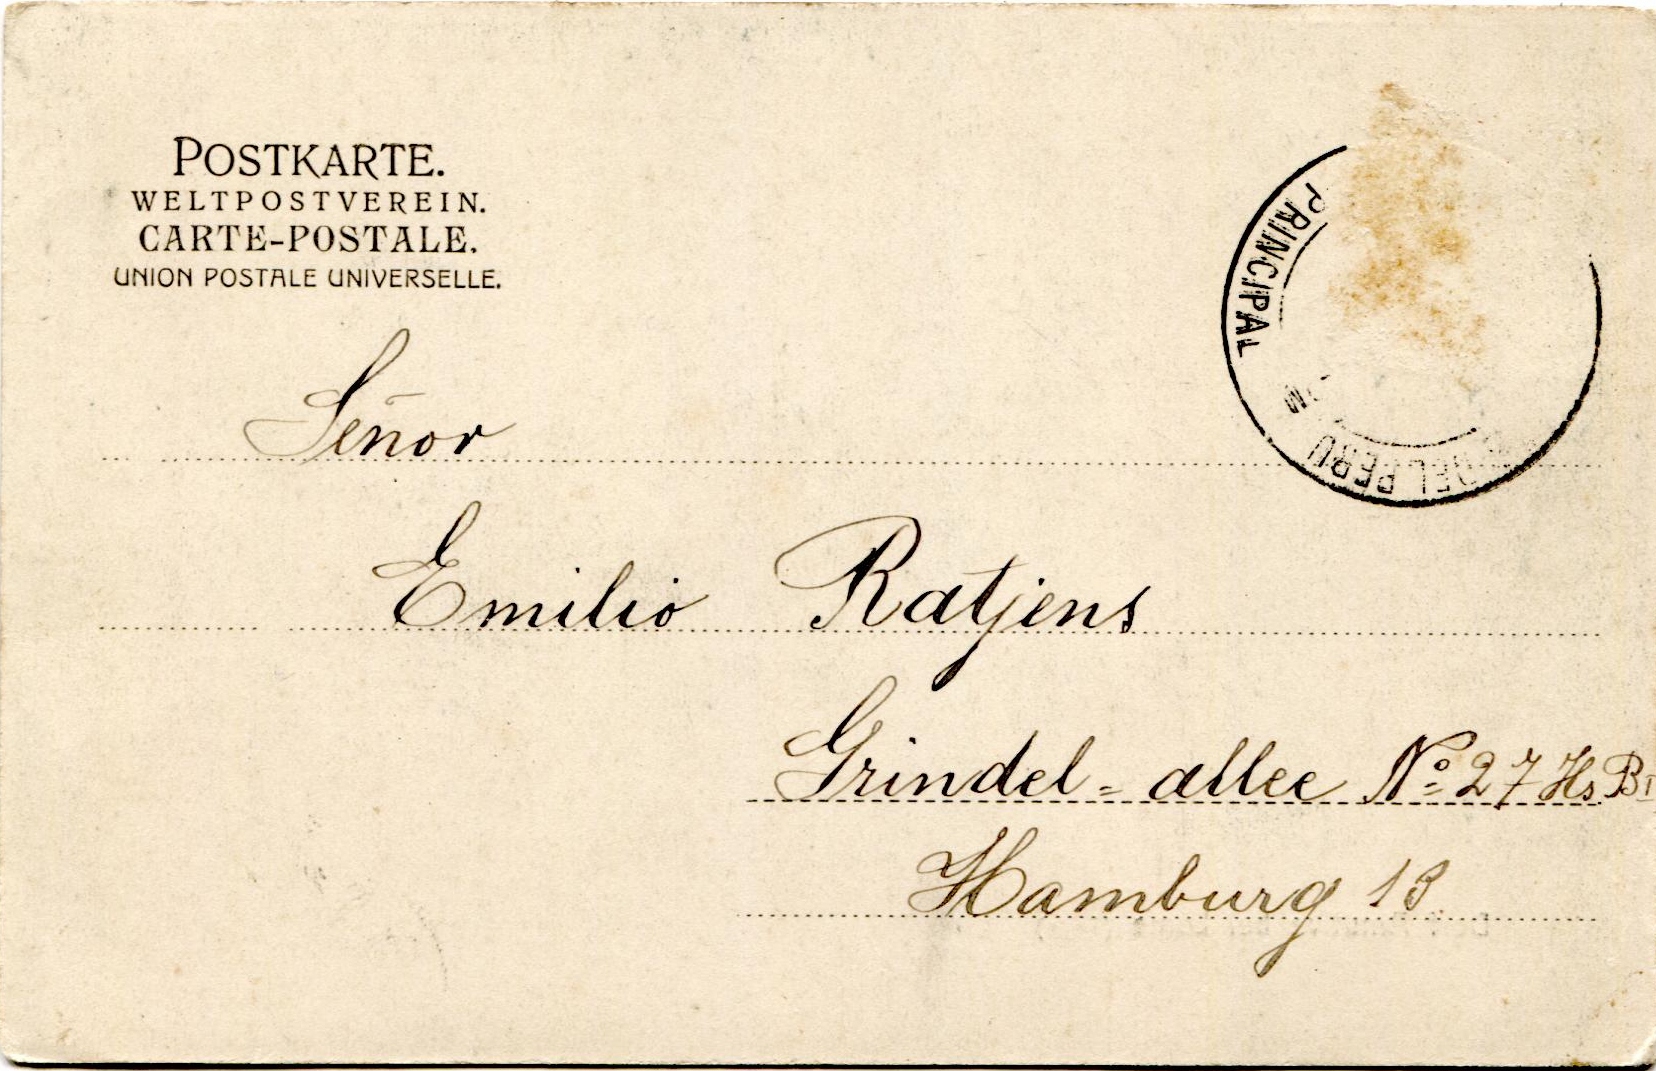 POSTKARTE.
WELTPOSTVEREIN.
CARTE-POSTALE.
UNION POSTALE UNIVERSELLE.
PRINCIPAL
DEL PERU
Señor
Emilio Ratjens
Grindel=allee Nº 27 Hs B I
Hamburg 13